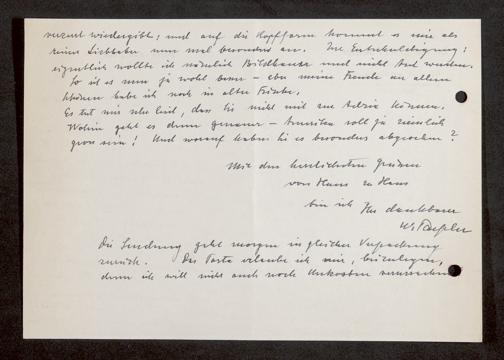 verzerrt wiedergibt; und auf die Kopfform kommt es mir als
reinen Liebhaber nun mal besonders an. Zur Entschuldigung:
eigentlich wollte ich nämlich Bildhauer und nicht Arzt werden.
So ist es nun ja wohl besser – aber meine Freude an allem
Schönen habe ich noch in alter Frische.
Es tut mir sehr leid, dass Sie nicht mit zur Adria können.
Wohin geht es denn genauer – Amerika soll ja ziemlich
gross sein! Und worauf haben Sie es besonders abgesehen?
Mit den herzlichsten Grüssen
von Haus zu Haus
bin ich Ihr dankbarer
Die Sendung geht morgen in gleicher Verpackung
zurück. Das Porto erlaube ich mir, beizulegen,
denn ich will nicht auch noch Unkosten verursachen